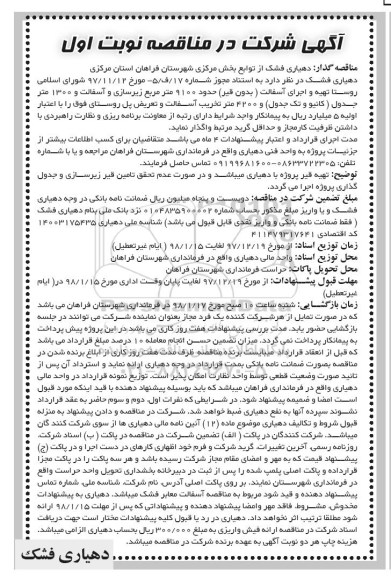 آگهی شرکت در مناقصه نوبت اول
مناقصه گذار: دهیاری فشک از توابع بخش مرکزی شهرستان فراهان استان مرکزی
دهیاری فشـــک در نظر دارد به استناد مجوز شـــماره ۱۷/ف/۵- مورخ ۹۷/۱۱/۱۲ شورای اسلامی
روستا تهیه و اجرای آسفالت ( بدون قیر) حدود ۹۱۰۰ متر مربع زیرسازی و آسفالت و ۱۳۰۰ متر
جــدول ( کانیو و تک جدول) و ۴۲۰۰ متر تخریب آسـفالت و تعریض پل روستای فوق را با اعتبار
اولیه ۵ میلیارد ریال به پیمانکار واجد شرایط دارای رتبه از معاونت برنامه ریزی و نظارت راهبردی با
داشتن ظرفیت کارمجاز و حداقل گرید مرتبط واگذار نماید.
مدت اجرای قرارداد و اعتبار پیشـنهادات ۴ ماه می باشد متقاضیان برای کسب اطلاعات بیشتر از
جزئیـات پروژه به واحد فنی دهیاری واقع در فرمانداری شهرستان فراهان مراجعه و یا با شماره
تلفن: ۰۸۶۳۳۷۲۲۳۰۵-۰۹۱۹۹۶۸۱۶۰۰ تماس حاصل فرمایند.
توضیح: تهیه قیر پروژه با دهیاری میباشد و در صورت عدم تحقق تامین قیر زیرسازی و جدول
گذاری پروژه اجرا می گردد.
مبلغ تضمین شرکت در مناقصه: دویست و پنجاه میلیون ریال ضمانت نامه بانکی در وجه دهیاری
فشک و یا واریز مبلغ مذکور بحساب شماره ۰۱۰۴۸۳۵۹۰۰۰۰۲ نزد بانک ملی بنام دهیاری فشک
( فقط ضمانت نامه بانکی و واریز نقدی قابل قبول می باشد) شناسه ملی دهیاری ۱۴۰۰۳۱۷۵۴۳۵
کد اقتصادی ۴۱۱۴۷۹۳۱۷۶۴۱
زمان توزیع اسناد: از مورخ ۹۷/۱۲/۱۹ لغایت ۹۸/۱/۱۵ ( ایام غیرتعطیل)
محل توزیع اسناد: واحد مالی دهیاری واقع در فرمانداری شهرستان فراهان
محل تحویل پاکات: حراست فرمانداری شهرستان فراهان
مهلت قبول پیشـنهادات: از مورخ ۹۷/۱۲/۱۹ لغایت پایان وقـت اداری مورخ ۹۸/۱/۱۵ در( ایام
غیرتعطیل)
زمان بازگشـایی: شنبه ساعت ۱۰ صبح مورخ ۹۸/۱/۱۷ در فرمانداری شهرستان فراهان می باشد
که در صورت تمایل از هرشـرکت کننده یک فرد مجاز بعنوان نماینده شـرکت می توانند در جلسه
بازگشایی حضور یابد. مدت بررسی پیشنهادات هفت روز کاری می باشد در این پروژه پیش پرداخت
به پیمانکار پرداخت نمی گردد. میزان تضمین حسـن انجام معامله ۱۰ درصد مبلغ قرارداد می باشد
که قبل از انعقاد قرارداد میبایست برنده مناقصه ظرف مدت هفت روز کاری از ابلاغ برنده شدن در
مناقصه بصورت ضمانت نامه بانکی بمدت قرارداد در وجه دهیاری ارائه نماید و استرداد آن پس از
تائید صورت وضعیت قطعی توسط واحد نظارت امکان پذیر است. توزیع نمونه قرارداد در واحد مالی
دهیاری واقع در فرمانداری فراهان میباشد که باید بوسیله پیشنهاد دهنده با قید اینکه مورد قبول
اسـت امضا و ضمیمه پیشنهاد شود. در شـرایطی که نفرات اول، دوم و سوم حاضر به عقد قرارداد
نشـوند سپرده آنها به نفع دهیاری ضبط خواهد شد. شـرکت در مناقصه و دادن پیشنهاد به منزله
قبول شروط و تکالیف دهیاری موضوع ماده (۱۲) آئین نامه مالی دهیاری ها از سوی شرکت کنند گان
میباشـد. شرکت کنندگان در پاکت ( الف) تضمین شـرکت در مناقصه در پاکت ( ب) اسناد شرکت،
روزنامه رسمی آخرین تغییرات، گرید شرکت و فرم خود اظهاری کارهای در دست اجرا و در پاکت (ج)
پیشـنهاد قیمت که به مهر و امضای مقام مجاز شرکت رسیده باشد و هر سه پاکت را در پاکت مجزا
قرارداده و پاکت اصلی پلمپ شده را پس از ثبت در دبیرخانه بخشداری تحویل واحد حراست واقع
در فرمانداری شهرستان نمایند. بر روی پاکت اصلی آدرس، نام شرکت، شناسه ملی، شماره تماس
پیشـنهاد دهنده و قید شود مربوط به مناقصه آسفالت معابر فشک میباشد. دهیاری به پیشنهادات
مخدوش، مشـروط، فاقد مهر وامضا پیشنهاد دهنده و پیشنهاداتی که پس از مهلت ۹۸/۱/۱۵ ارائه
شود مطلقا ترتیب اثر نخواهد داد. دهیاری در رد یا قبول کلیه پیشنهادات مختار است جهت دریافت
اسناد شرکت در مناقصه ارائه فیش واریزی به مبلغ ۳۰۰/۰۰۰ ریال بحساب دهیاری الزامی میباشد.
هزینه چاپ هر دو نوبت آگهی به عهده برنده شرکت در مناقصه میباشد.
دهیاری فشک